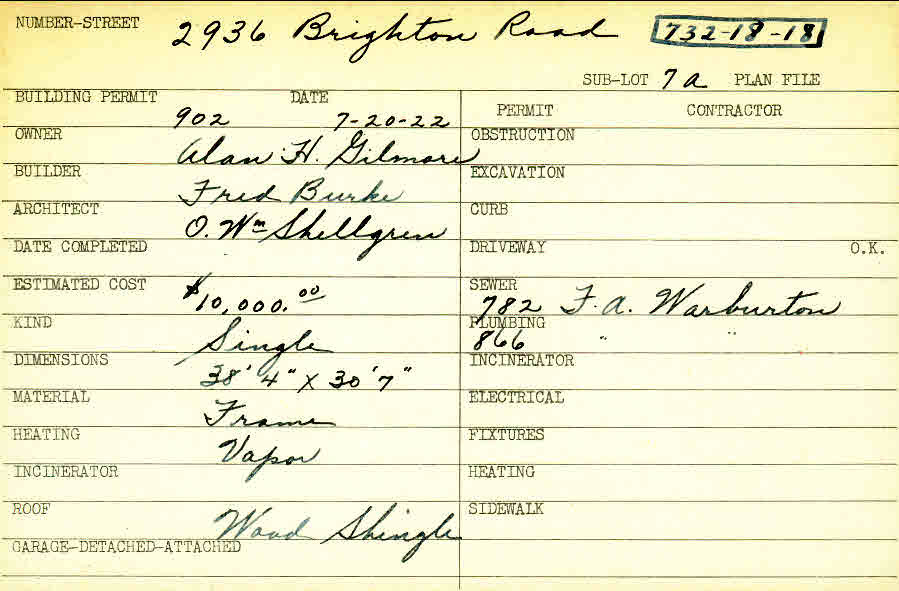 NUMBER-STREET 2936 Brighton Road 732-18-18
SUB-LOT 7a PLAN FILE
BUILDING PERMIT DATE
902 7-20-22
PERMIT CONTRACTOR
OWNER Alan H. Gilmore
OBSTRUCTION
BUILDER Fred Burke
EXCAVATION
ARCHITECT O. Wm Shellgren
CURB
DATE COMPLETED
DRIVEWAY O.K.
ESTIMATED COST $10,000.00
SEWER 782 F. A. Warburton
KIND Single
PLUMBING 866 " "
DIMENSIONS 38' 4" X 30' 7"
INCINERATOR
MATERIAL Frame
ELECTRICAL
HEATING Vapor
FIXTURES
INCINERATOR
HEATING
ROOF Wood Shingle
SIDEWALK
GARAGE-DETACHED-ATTACHED